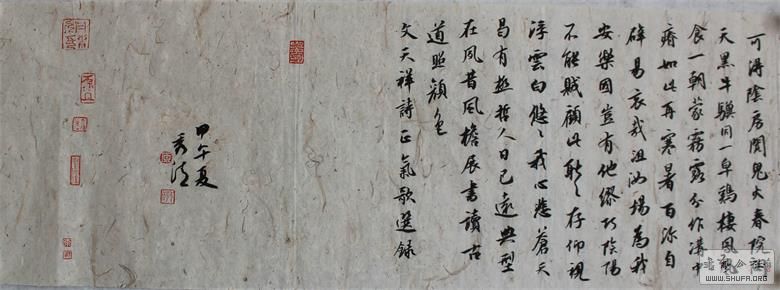 可得陰房闃鬼火春院閟
天黑牛驥同一皁鷄棲鳳凰
食一朝蒙霧露分作溝中
瘠如此再寒暑百沴自
辟易哀哉沮洳場為我
安樂國豈有他繆巧陰陽
不能賊顧此耿々存仰視
浮雲白悠々我心悲蒼天
曷有極哲人日已遠典型
在夙昔風檐展書讀古
道照顏色
文天祥詩正氣歌選録
甲午夏
WWW.SHUFA.ORG